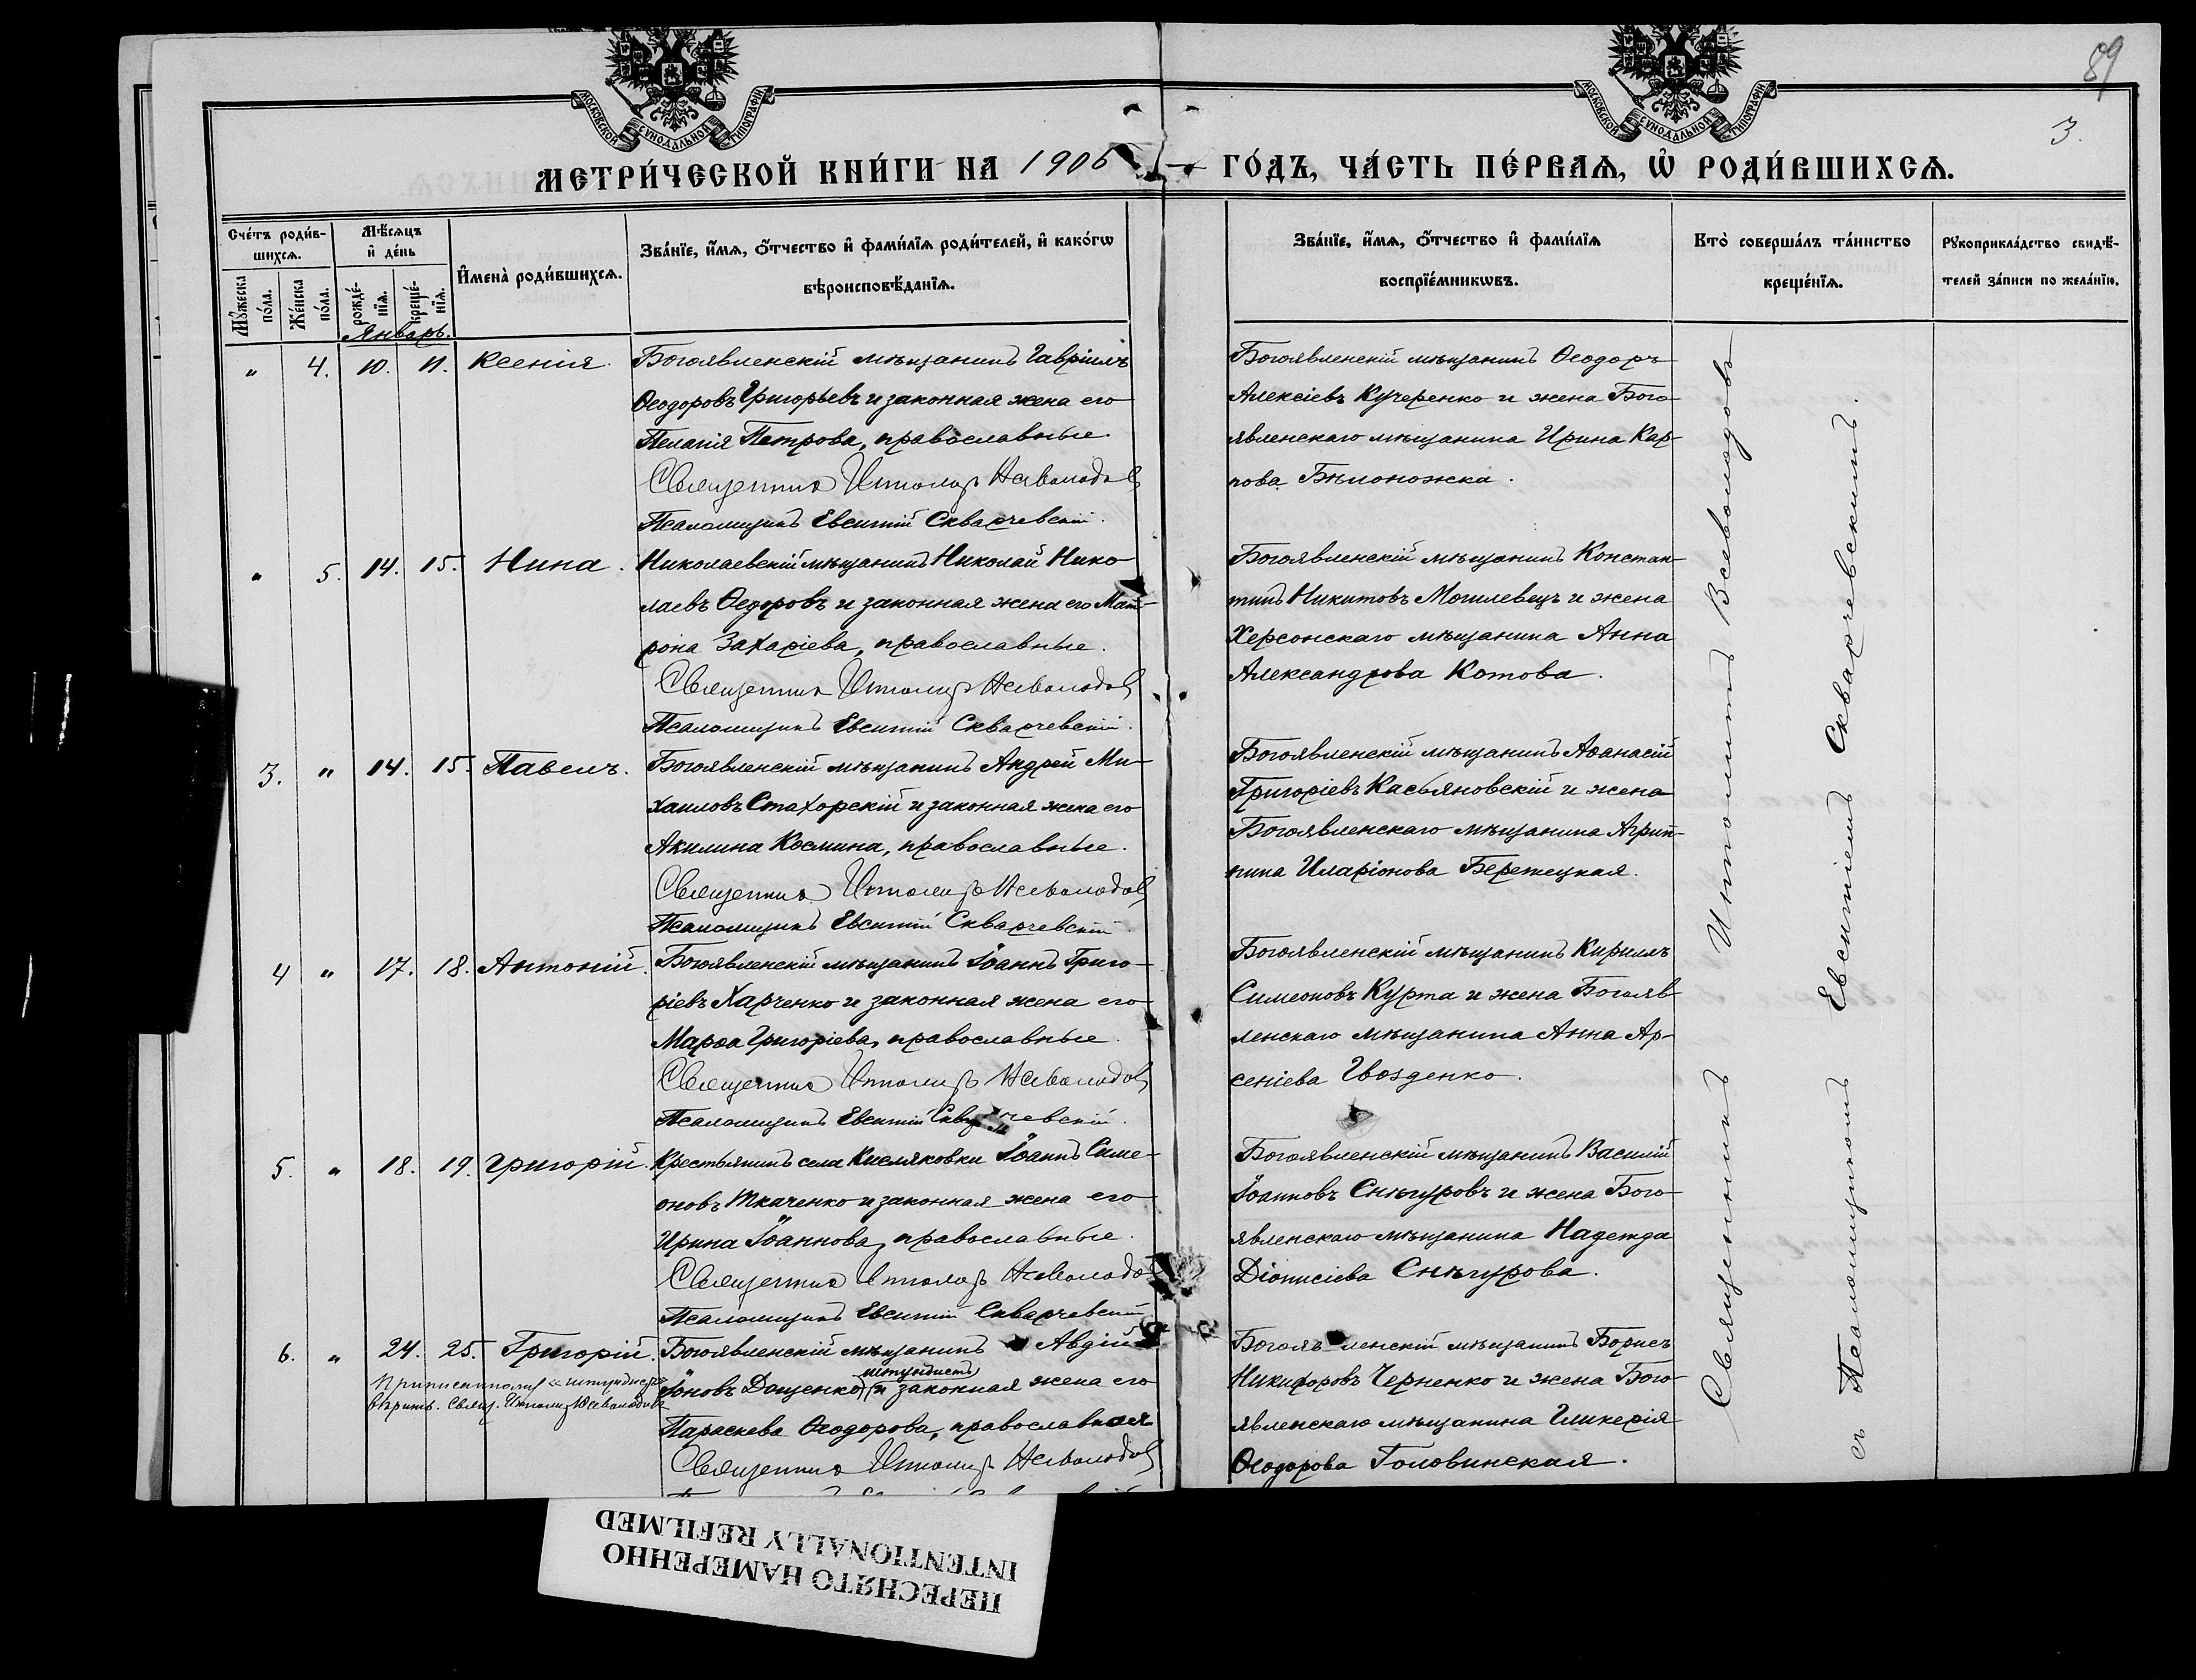 89
3.
МОСКОВСКОЙ СѴНОДАЛЬНОЙ ТИПОГРАФІИ
МОСКОВСКОЙ СѴНОДАЛЬНОЙ ТИПОГРАФІИ
МЕТРИ́ЧЕСКОЙ КНИ́ГИ НА 1906 ГО́ДЪ, ЧА́СТЬ ПЕ́РВАѦ, Ѡ҆ РОДИ́ВШИХСѦ.
Сче́тъ роди́вшихсѧ.
Мꙋ́жеска по́ла.
Же́нска по́ла.
Мѣ́сѧцъ и҆ де́нь
рожде́нїѧ.
креще́нїѧ.
И҆мена̀ роди́вшихсѧ.
Зва́нїе, и҆́мѧ, ѻ҆́тчество и҆ фами́лїѧ роди́телей, и҆ како́гѡ
вѣроисповѣ́данїѧ.
Зва́нїе, и҆́мѧ, ѻ҆́тчество и҆ фами́лїѧ
воспрїе́мникѡвъ.
Кто̀ соверша́лъ та́инство
креще́нїѧ.
Рꙋкоприкла́дство свидѣ́-
телей за́писи по жела́нїю.
Январь.
" 4. 10. 11. Ксенія.
Богоявленскій мѣщанинъ Гавріилъ
Ѳеодоровъ Григорьевъ и законная жена его
Пелагія Петрова, православные.
Священникъ Ипполитъ Всеволодовъ
Псаломщикъ Евсигній Скварчевскій.
Богоявленскій мѣщанинъ Ѳеодоръ
Алексіевъ Кучеренко и жена Бого-
явленскаго мѣщанина Ирина Кар-
пова Бѣлоножка.
" 5. 14. 15. Нина.
Николаевскій мѣщанинъ Николай Нико-
лаевъ Ѳедоровъ и законная жена его Мат-
рона Захаріева, православные.
Священникъ Ипполитъ Всеволодовъ
Псаломщикъ Евсигній Скварчевскій.
Богоявленскій мѣщанинъ Констан-
тинъ Никитовъ Могилевецъ и жена
Херсонскаго мѣщанина Анна
Александрова Котова.
3. " 14. 15. Павелъ.
Богоявленскій мѣщанинъ Андрей Ми-
хаиловъ Стахорскій и законная жена его
Акилина Космина, православные.
Священникъ Ипполитъ Всеволодовъ
Псаломщикъ Евсигній Скварчевскій.
Богоявленскій мѣщанинъ Аѳанасій
Григоріевъ Касьяновскій и жена
Богоявленскаго мѣщанина Агрип-
пина Иларіонова Бережецкая.
4 " 17. 18. Антоній.
Богоявленскій мѣщанинъ Іоаннъ Григо-
ріевъ Харченко и законная жена его
Марѳа Григоріева, православные.
Священникъ Ипполитъ Всеволодовъ
Псаломщикъ Евсигній Скварчевскій.
Богоявленскій мѣщанинъ Кириллъ
Симеоновъ Курта и жена Богояв-
ленскаго мѣщанина Анна Ар-
сеніева Гвозденко.
5. " 18. 19. Григорій.
Крестьянинъ села Кисляковки Іоаннъ Симе-
оновъ Ткаченко и законная жена его
Ирина Іоаннова, православные.
Священникъ Ипполитъ Всеволодовъ
Псаломщикъ Евсигній Скварчевскій
Богоявленскій мѣщанинъ Василій
Іоанновъ Снѣгуровъ и жена Бого-
явленскаго мѣщанина Надежда
Діонисіева Снѣгурова.
6. " 24. 25. Григорій.
Приписанному "штундистъ"
вѣрить. Свящ. Ипполитъ Всеволодовъ
Богоявленскій мѣщанинъ Авдій
Іоновъ Дощенко (штундистъ) и законная жена его
Параскева Ѳеодорова, православная
Священникъ Ипполитъ Всеволодовъ
Богоявленскій мѣщанинъ Борисъ
Никифоровъ Черненко и жена Бого-
явленскаго мѣщанина Гликерія
Ѳеодорова Головинская.
Священникъ Ипполитъ Всеволодовъ
съ Псаломщикомъ Евсигніемъ Скварчевскимъ.
ПЕРЕСНЯТО НАМЕРЕННО
INTENTIONALLY REFILMED